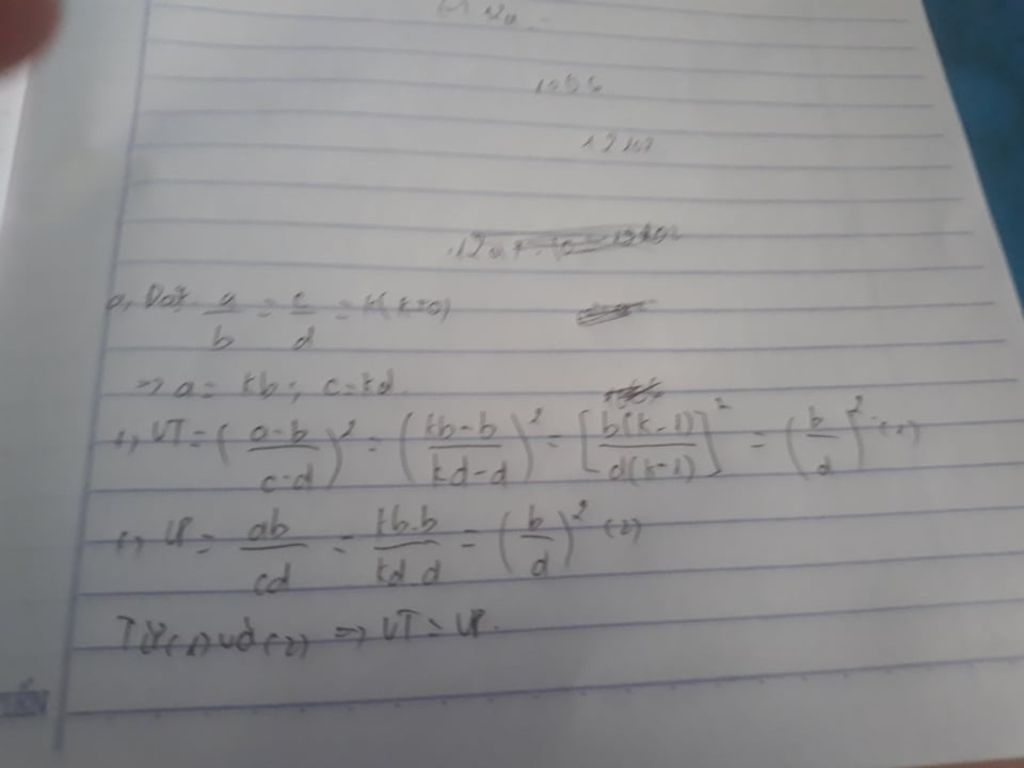 Đặt a/b = c/d = k (k≠0)
=> a = kb; c = kd.
+, VT = (a-b / c-d)² = (kb-b / kd-d)² = [b(k-1) / d(k-1)]² = (b/d)² (1)
+, VP = ab/cd = kb.b / kd.d = (b/d)² (2)
Từ (1) và (2) => VT = VP.